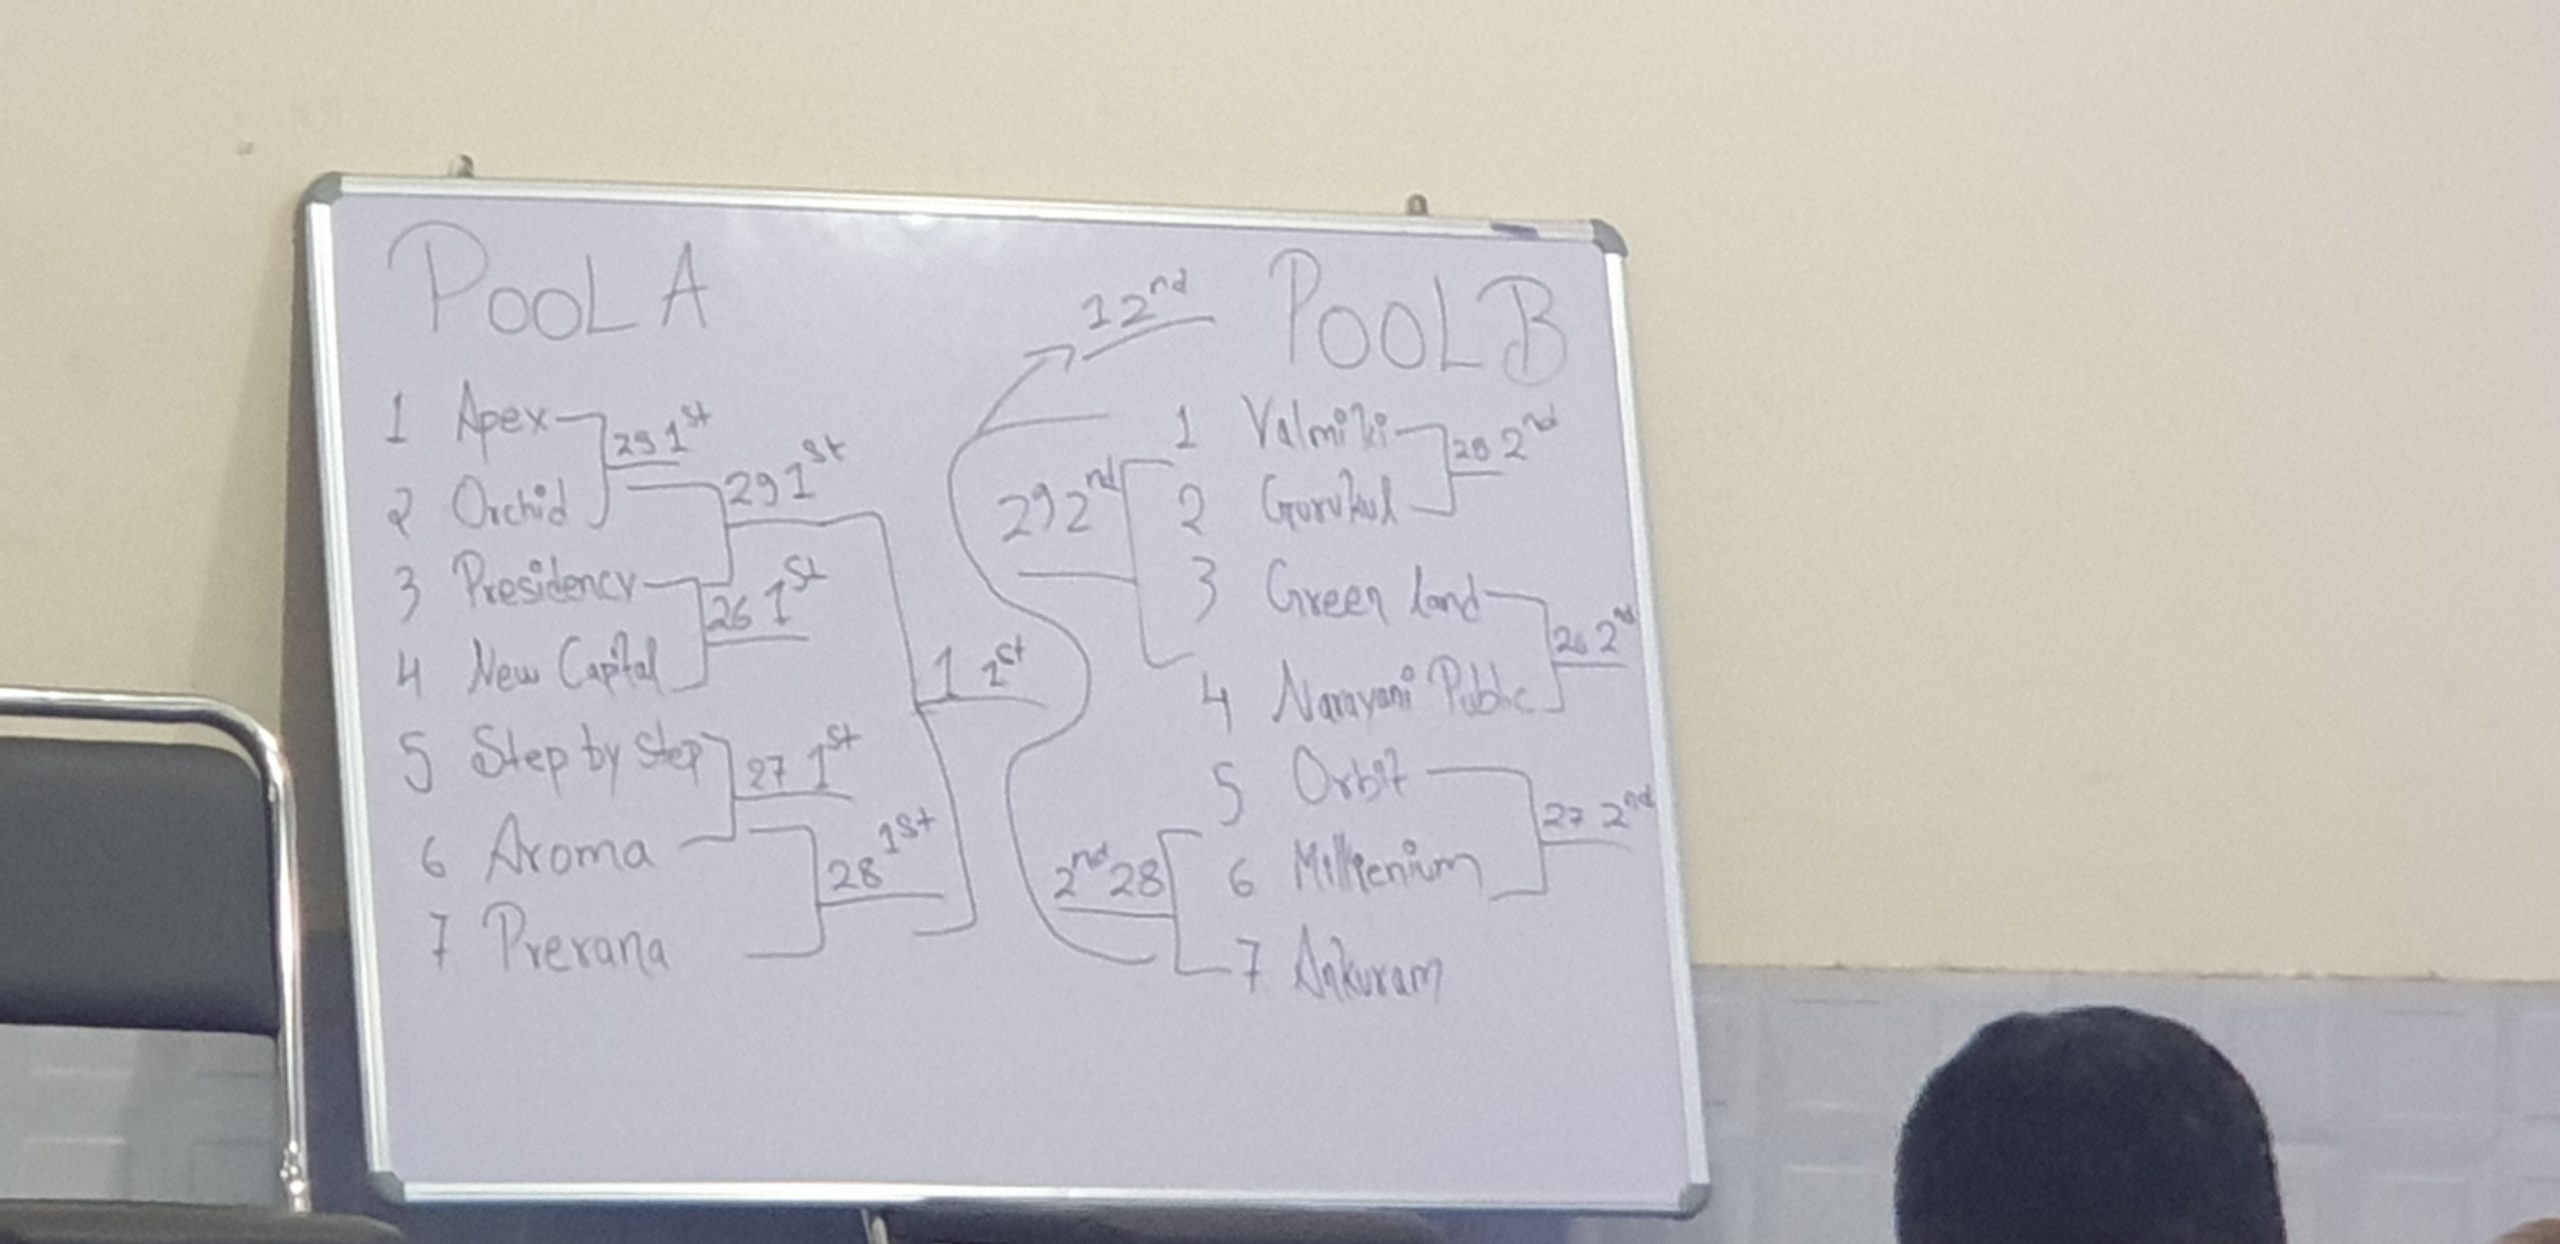 POOL A
1 Apex
2 Orchid
3 Presidency
4 New Capital
5 Step by step
6 Aroma
7 Prerana
1st
29 1st
26 1st
27 1st
28 1st
1 1st
12nd
POOL B
1 Valmiki
2 Gurukul
3 Green land
4 Narayani Public
5 Orbit
6 Millenium
7 Ankuram
2nd
2nd
27 2nd
29 2nd
2nd 28